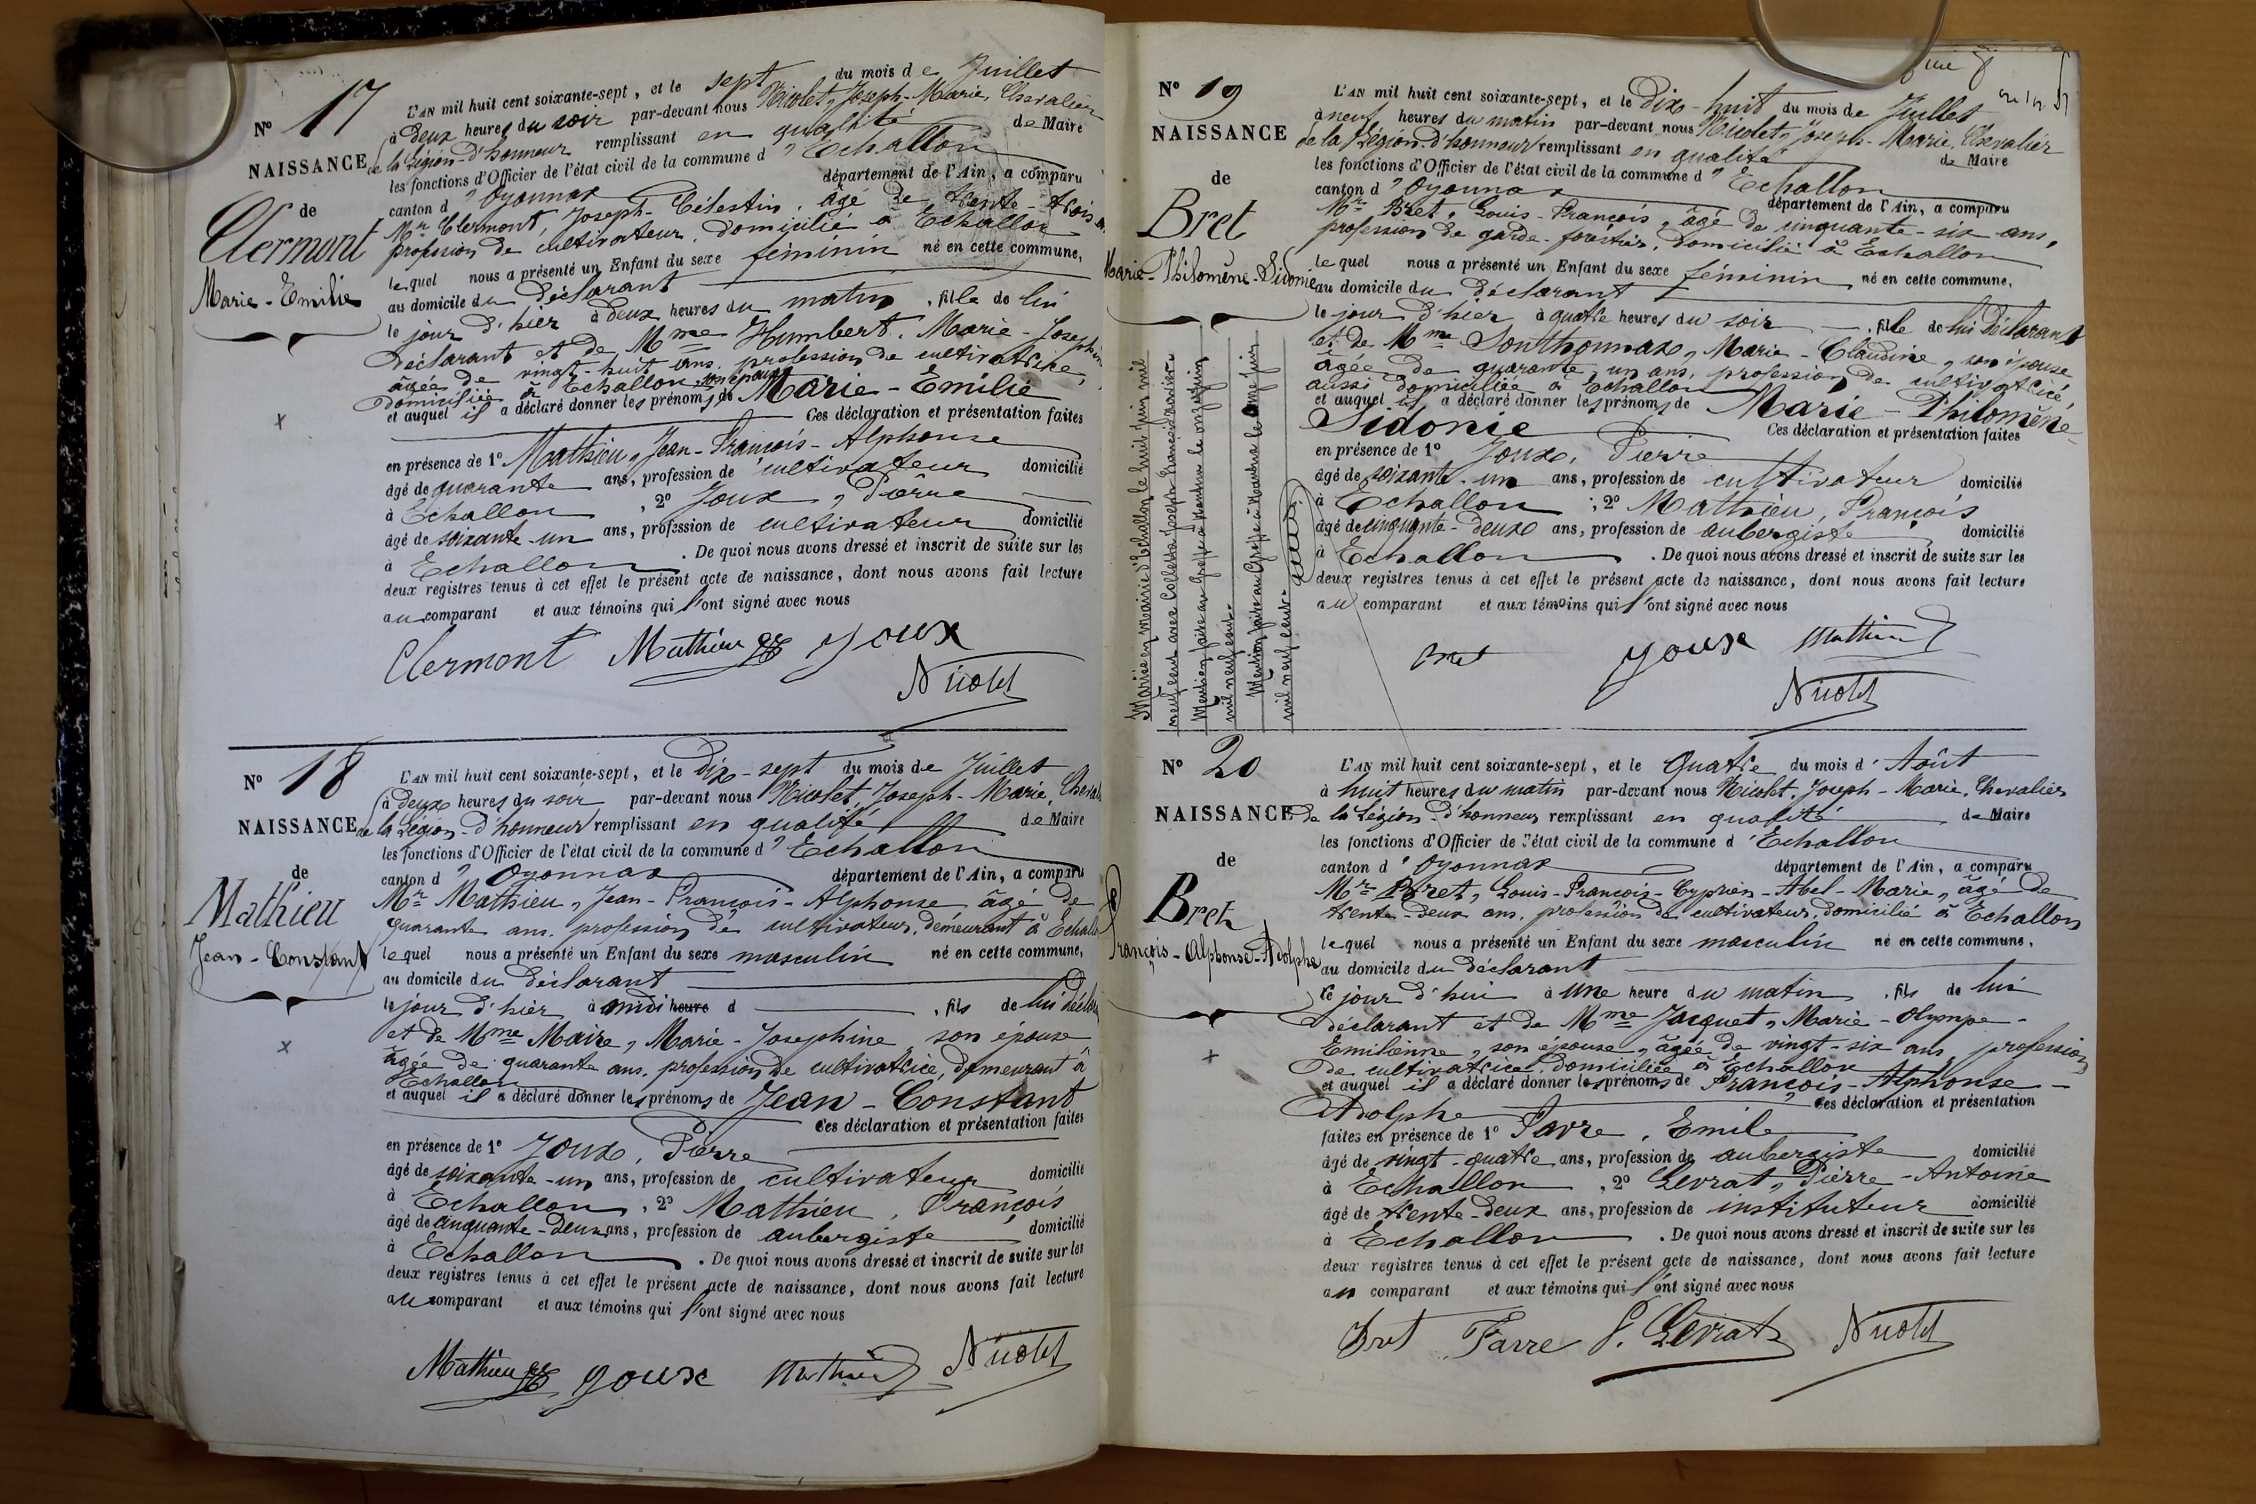 N° 17
NAISSANCE
de
Clermont
Marie - Emilie
L'AN mil huit cent soixante-sept, et le sept du mois de Juillet
à deux heures du soir par-devant nous Nicolet, Joseph-Marie, Chevalier
de la Légion-d'honneur remplissant en qualité de Maire
les fonctions d'Officier de l'état civil de la commune d' Echallon
canton d' Oyonnax département de l'Ain, a comparu
Mr Clermont, Joseph-Célestin, âgé de trente-trois ans
profession de cultivateur, domicilié à Echallon
lequel nous a présenté un Enfant du sexe féminin né en cette commune,
au domicile du déclarant
le jour d'hier à deux heures du matin, fille de lui
déclarant et de Mme Humbert, Marie-Josephine
âgée de vingt-huit ans, profession de cultivatrice,
domiciliée à Echallon son épouse
et auquel il a déclaré donner les prénoms de Marie-Emilie
Ces déclaration et présentation faites
en présence de 1° Mathieu, Jean-François-Alphonse
âgé de quarante ans, profession de cultivateur domicilié
à Echallon, 2° Joux, Pierre
âgé de soixante-un ans, profession de cultivateur domicilié
à Echallon. De quoi nous avons dressé et inscrit de suite sur les
deux registres tenus à cet effet le présent acte de naissance, dont nous avons fait lecture
au comparant et aux témoins qui l'ont signé avec nous
Clermont Mathieu Joux
Nicolet
N° 18
NAISSANCE
de
Mathieu
Jean-Constant
L'AN mil huit cent soixante-sept, et le Dix-sept du mois de Juillet
à deux heures du soir par-devant nous Nicolet, Joseph-Marie,
de la Légion-d'honneur remplissant en qualité de Maire
les fonctions d'Officier de l'état civil de la commune d' Echallon
canton d' Oyonnax département de l'Ain, a comparu
Mr Mathieu, Jean-François-Alphonse âgé de
quarante ans, profession de cultivateur, demeurant à
lequel nous a présenté un Enfant du sexe masculin né en cette commune,
au domicile du déclarant
le jour d'hier à midi heure d , fils de lui
et de Mme Maire, Marie-Josephine son épouse
âgée de quarante ans, profession de cultivatrice, demeurant à
Echallon
et auquel il a déclaré donner les prénoms de Jean-Constant
Ces déclaration et présentation faites
en présence de 1° Joux, Pierre
âgé de soixante-un ans, profession de cultivateur domicilié
à Echallon, 2° Mathieu, François
âgé de cinquante-deux ans, profession de aubergiste domicilié
à Echallon. De quoi nous avons dressé et inscrit de suite sur les
deux registres tenus à cet effet le présent acte de naissance, dont nous avons fait lecture
au comparant et aux témoins qui l'ont signé avec nous
Mathieu Joux Mathieu Nicolet
N° 19
NAISSANCE
de
Bret
Marie-Philomène-Sidonie
Mariée en mairie d'Echallon le huit juin mil
neuf cent avec Collet
Mention faite au Greffe à Nantua le onze juin
mil neuf cent.
Mention faite au Greffe à Nantua le onze juin
mil neuf cent.
L'AN mil huit cent soixante-sept, et le Dix-huit du mois de Juillet
à neuf heures du matin par-devant nous Nicolet, Joseph-Marie, Chevalier
de la Légion-d'honneur remplissant en qualité de Maire
les fonctions d'Officier de l'état civil de la commune d' Echallon
canton d' Oyonnax département de l'Ain, a comparu
Mr Bret, Louis-François, âgé de cinquante-six ans,
profession de garde-forestier, domicilié à Echallon
lequel nous a présenté un Enfant du sexe féminin né en cette commune,
au domicile du déclarant
le jour d'hier à quatre heures du soir, fille de lui déclarant
et de Mme Sonthonnax, Marie-Claudine, son épouse
âgée de quarante-un ans, profession de cultivatrice,
aussi domiciliée à Echallon
et auquel il a déclaré donner les prénoms de Marie-Philomène-
Sidonie Ces déclaration et présentation faites
en présence de 1° Joux, Pierre
âgé de soixante-un ans, profession de cultivateur domicilié
à Echallon; 2° Mathieu, François
âgé de cinquante-deux ans, profession de aubergiste domicilié
à Echallon. De quoi nous avons dressé et inscrit de suite sur les
deux registres tenus à cet effet le présent acte de naissance, dont nous avons fait lecture
au comparant et aux témoins qui l'ont signé avec nous
Bret Joux Mathieu
Nicolet
N° 20
NAISSANCE
de
Bret
François-Alphonse-Adolphe
L'AN mil huit cent soixante-sept, et le Quatre du mois d' Août
à huit heures du matin par-devant nous Nicolet, Joseph-Marie, Chevalier
de la Légion-d'honneur remplissant en qualité de Maire
les fonctions d'Officier de l'état civil de la commune d' Echallon
canton d' Oyonnax département de l'Ain, a comparu
Mr Bret, Louis-François-Cyprien-Abel-Marie, âgé de
trente-deux ans, profession de cultivateur, domicilié à Echallon
lequel nous a présenté un Enfant du sexe masculin né en cette commune,
au domicile du déclarant
ce jour d'hui à une heure du matin, fils de lui
déclarant et de Mme Jacquet, Marie-Olympe-
Emilienne, son épouse, âgée de vingt-six ans, profession
de cultivatrice, domiciliée à Echallon
et auquel il a déclaré donner les prénoms de François-Alphonse-
Adolphe Ces déclaration et présentation
faites en présence de 1° Favre, Emile
âgé de vingt-quatre ans, profession de aubergiste domicilié
à Echallon, 2° Levrat, Pierre-Antoine
âgé de trente-deux ans, profession de instituteur domicilié
à Echallon. De quoi nous avons dressé et inscrit de suite sur les
deux registres tenus à cet effet le présent acte de naissance, dont nous avons fait lecture
au comparant et aux témoins qui l'ont signé avec nous
Bret Favre P. Levrat Nicolet